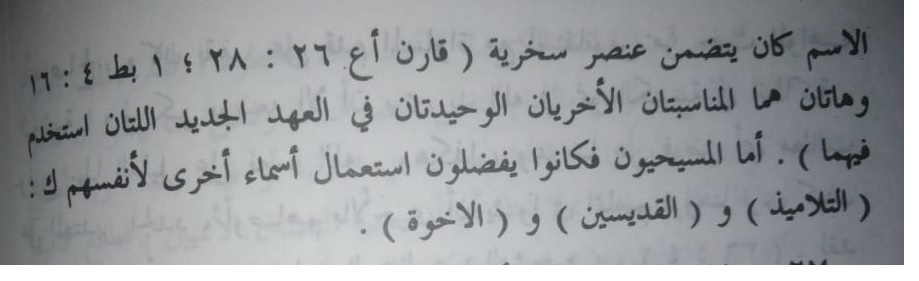 الاسم كان يتضمن عنصر سخرية ( قارن أع ٢٦ : ٢٨ ؛ ١ بط ٤ : ١٦
وهاتان هما المناسبتان الأخريان الوحيدتان في العهد الجديد اللتان استخدم
فيهما ) . أما المسيحيون فكانوا يفضلون استعمال أسماء أخرى لأنفسهم ك :
( التلاميذ ) و ( القديسين ) و ( الاخوة ) .